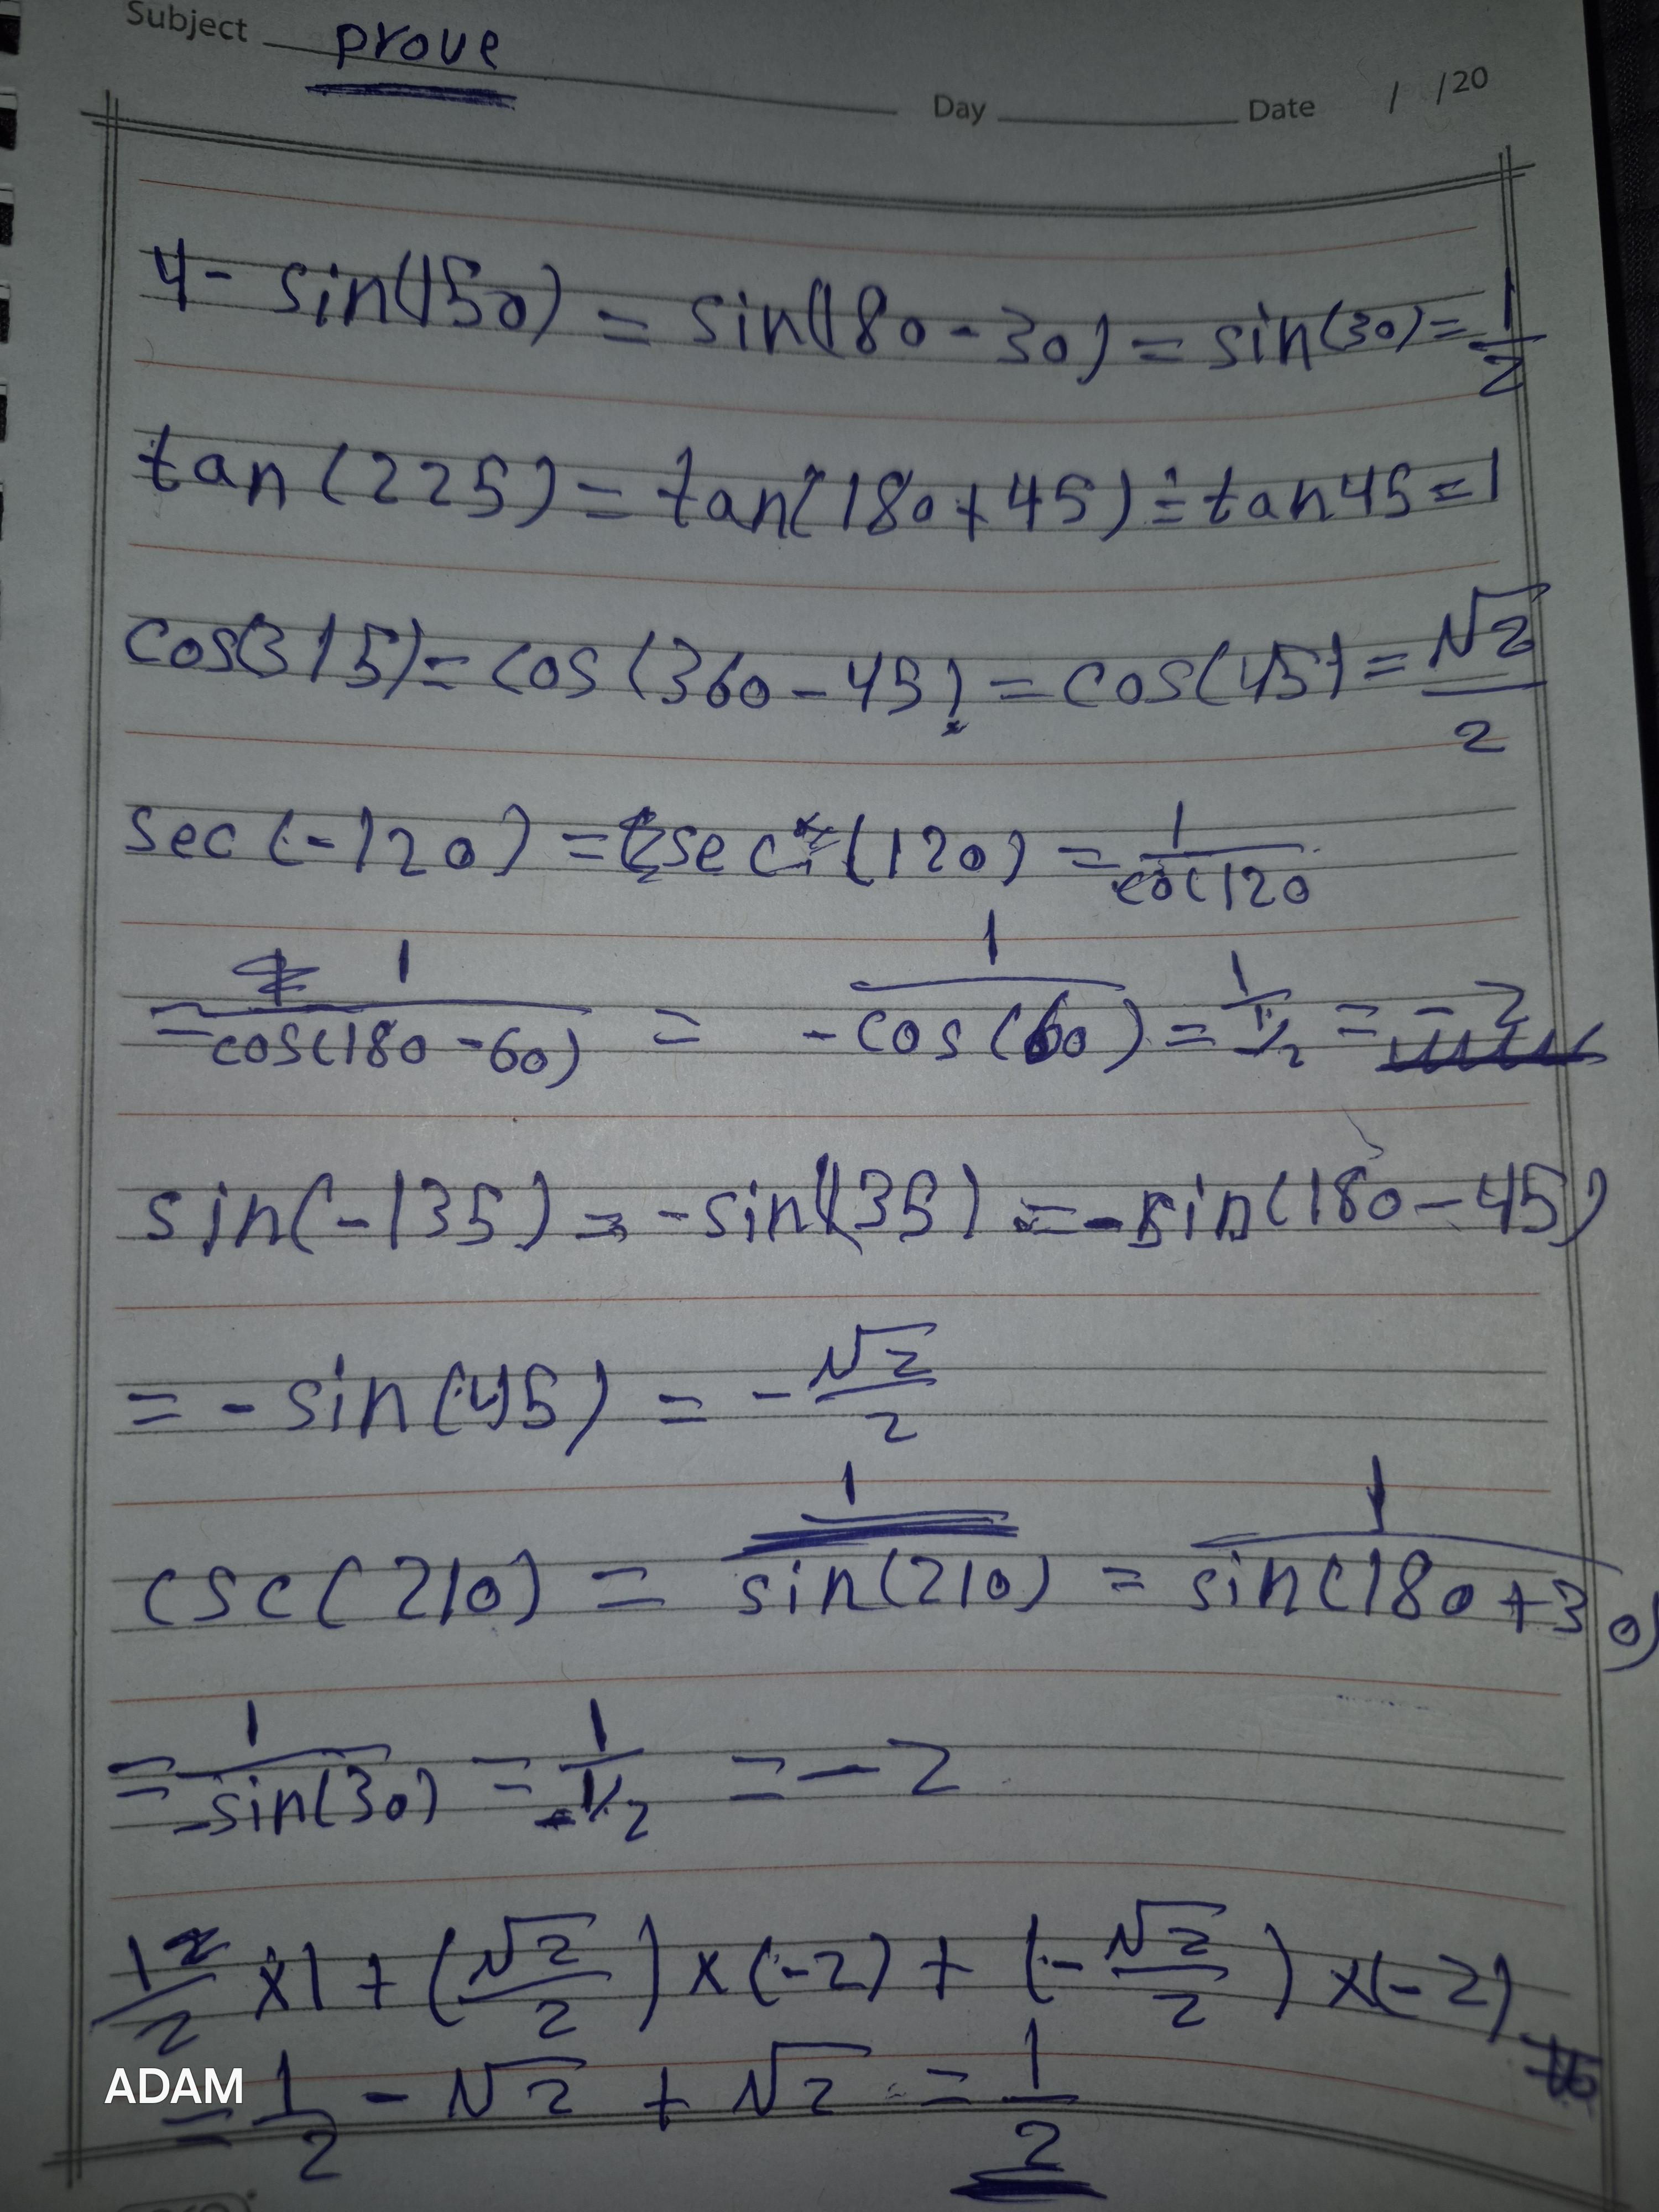 Subject prove
Day Date / /20
4- sin(150) = sin(180-30) = sin(30) = 1/2
tan(225) = tan(180+45) = tan45 = 1
cos(315) = cos(360-45) = cos(45) = √2/2
sec(-120) = sec(120) = 1/cos120
= 1/cos(180-60) = 1/-cos(60) = 1/1/2 = -2
sin(-135) = -sin(135) = -sin(180-45)
= -sin(45) = -√2/2
csc(210) = 1/sin(210) = 1/sin(180+30)
= 1/-sin(30) = 1/-1/2 = -2
1/2 ×1 + (√2/2) ×(-2) + (-√2/2) ×(-2)
= 1/2 - √2 + √2 = 1/2
ADAM